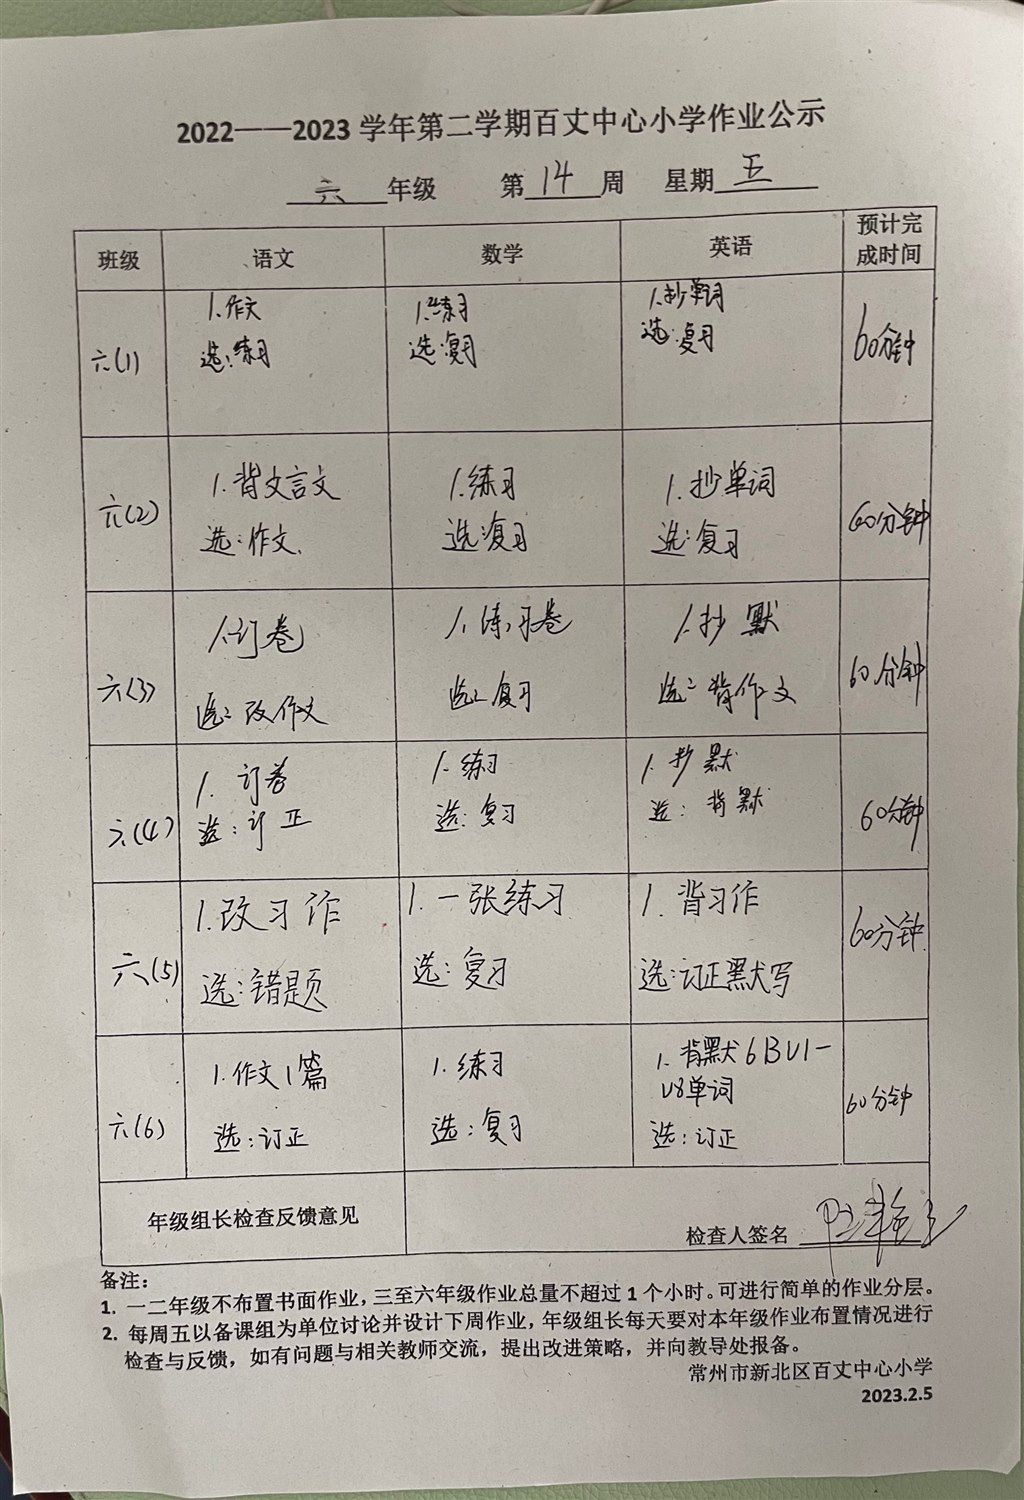 2022——2023 学年第二学期百丈中心小学作业公示
六 年级 第 14 周 星期 五
班级 语文 数学 英语 预计完成时间
六(1)
1.作文
选:练习
1.练习
选:复习
1.抄单词
选:复习
60分钟
六(2)
1.背文言文
选:作文.
1.练习
选:复习
1.抄单词
选:复习
60分钟
六(3)
1.订卷
选:改作文
1.练习卷
选:复习
1.抄默
选:背作文
60分钟
六(4)
1.订卷
选:订正
1.练习
选:复习
1.抄默
选:背默
60分钟
六(5)
1.改习作
选:错题
1.一张练习
选:复习
1.背习作
选:订正默写
60分钟
六(6)
1.作文1篇
选:订正
1.练习
选:复习
1.背默6BU1-
U8单词
选:订正
60分钟
年级组长检查反馈意见
检查人签名
备注:
1. 一二年级不布置书面作业,三至六年级作业总量不超过 1 个小时。可进行简单的作业分层。
2. 每周五以备课组为单位讨论并设计下周作业,年级组长每天要对本年级作业布置情况进行
检查与反馈,如有问题与相关教师交流,提出改进策略,并向教导处报备。
常州市新北区百丈中心小学
2023.2.5